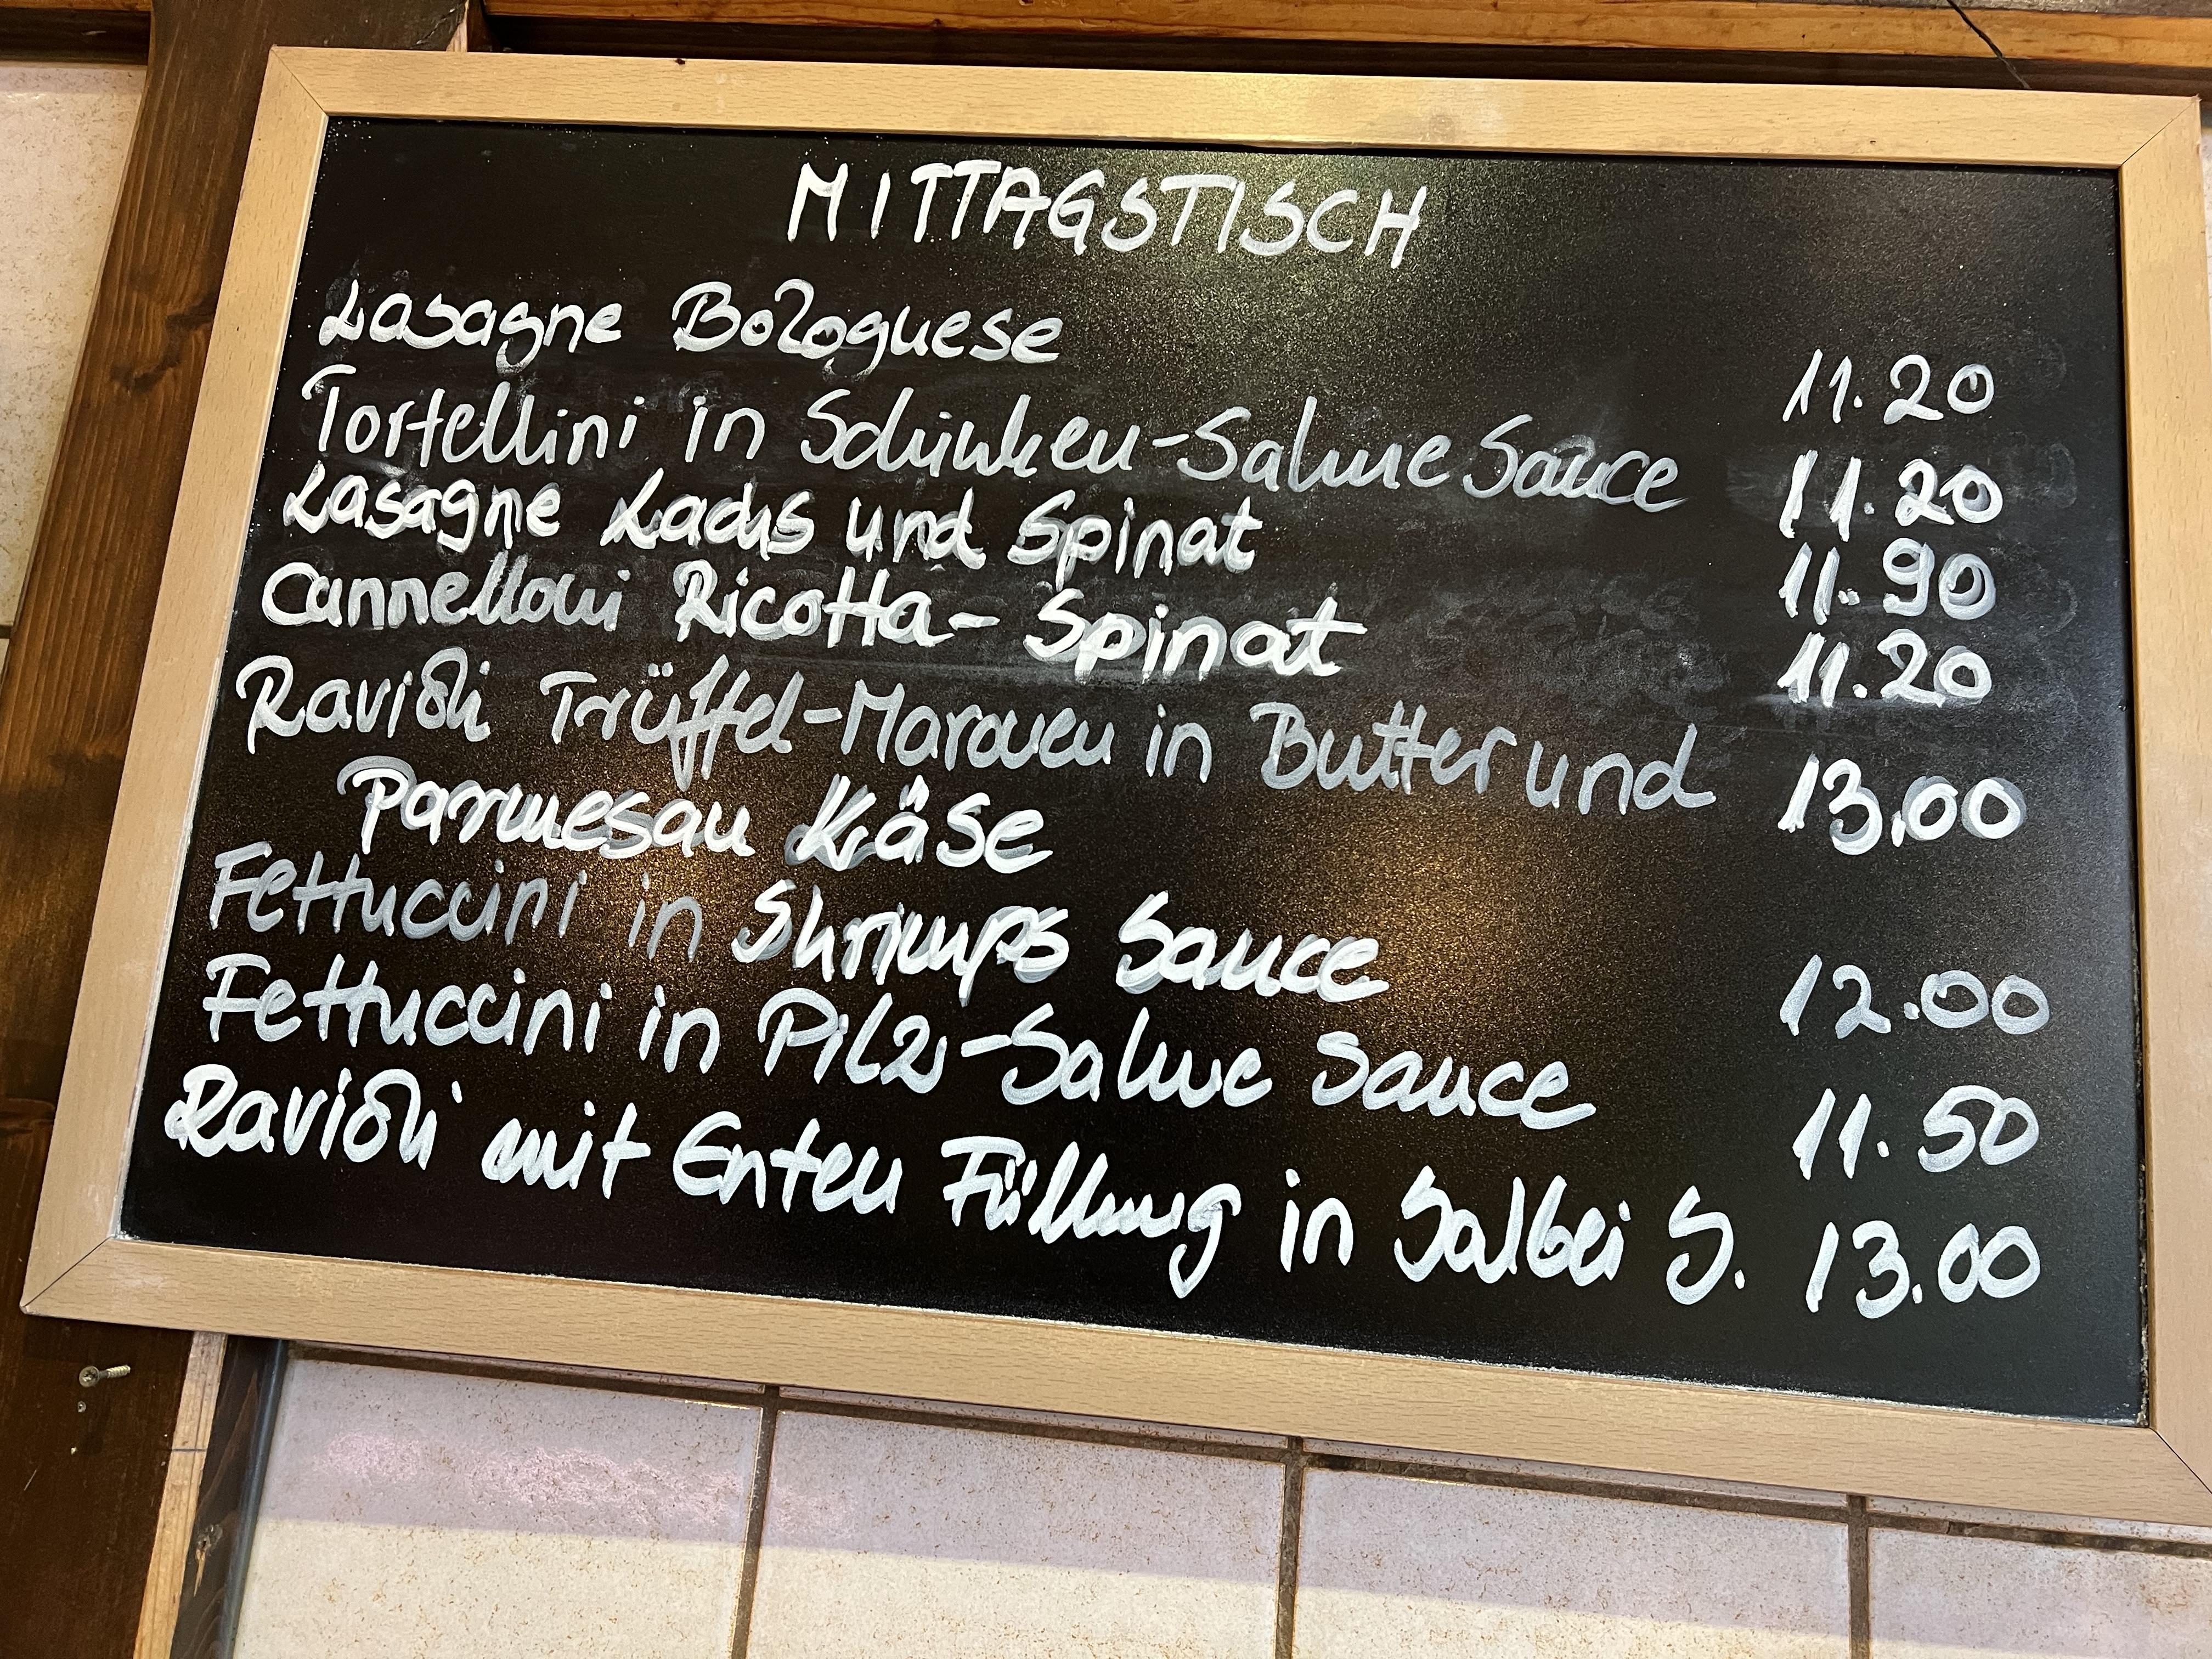 MITTAGSTISCH
Lasagne Bolognese 11.20
Tortellini in Schinken-Sahne Sauce 11.20
Lasagne Lachs und Spinat 11.90
Cannelloni Ricotta-Spinat 11.20
Ravioli Trüffel-Maronen in Butter und 13,00
Parmesan Käse
Fettuccini in Shrimps Sauce 12.00
Fettuccini in Pilz-Sahne Sauce 11.50
Ravioli mit Enten Füllung in Salbei S. 13.00